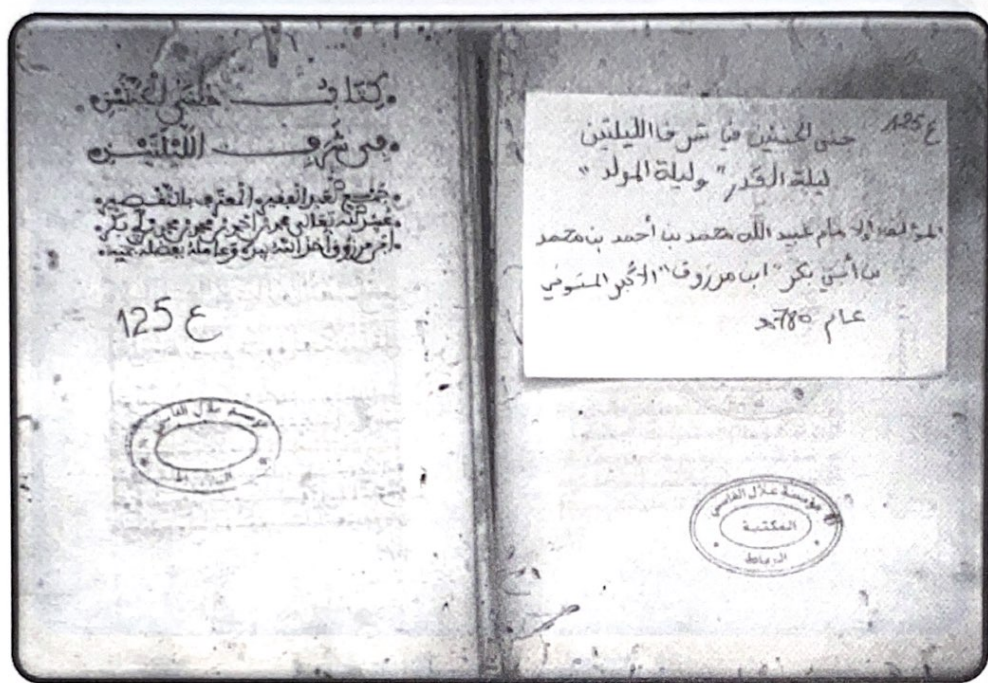 ع 125
جنى الجنتين في شرف الليلتين
ليلة القدر" وليلة المولد "
المؤلف: الإمام عبيد الله محمد بن أحمد بن محمد
بن أبي بكر "ابن مرزوق" الأكبر المتوفى
عام 780هـ
مؤسسة علال الفاسي
المكتبة
الرباط
كتاب جنى الجنتين
في شرف الليلتين
جمع العبد الفقير المعترف بالتقصير
عبد الله تعالى محمد بن أحمد بن محمد بن محمد بن أبي بكر
ابن مرزوق أخذ الله بيده وعامله بفضله بمنه
ع 125
مؤسسة علال الفاسي
الرباط